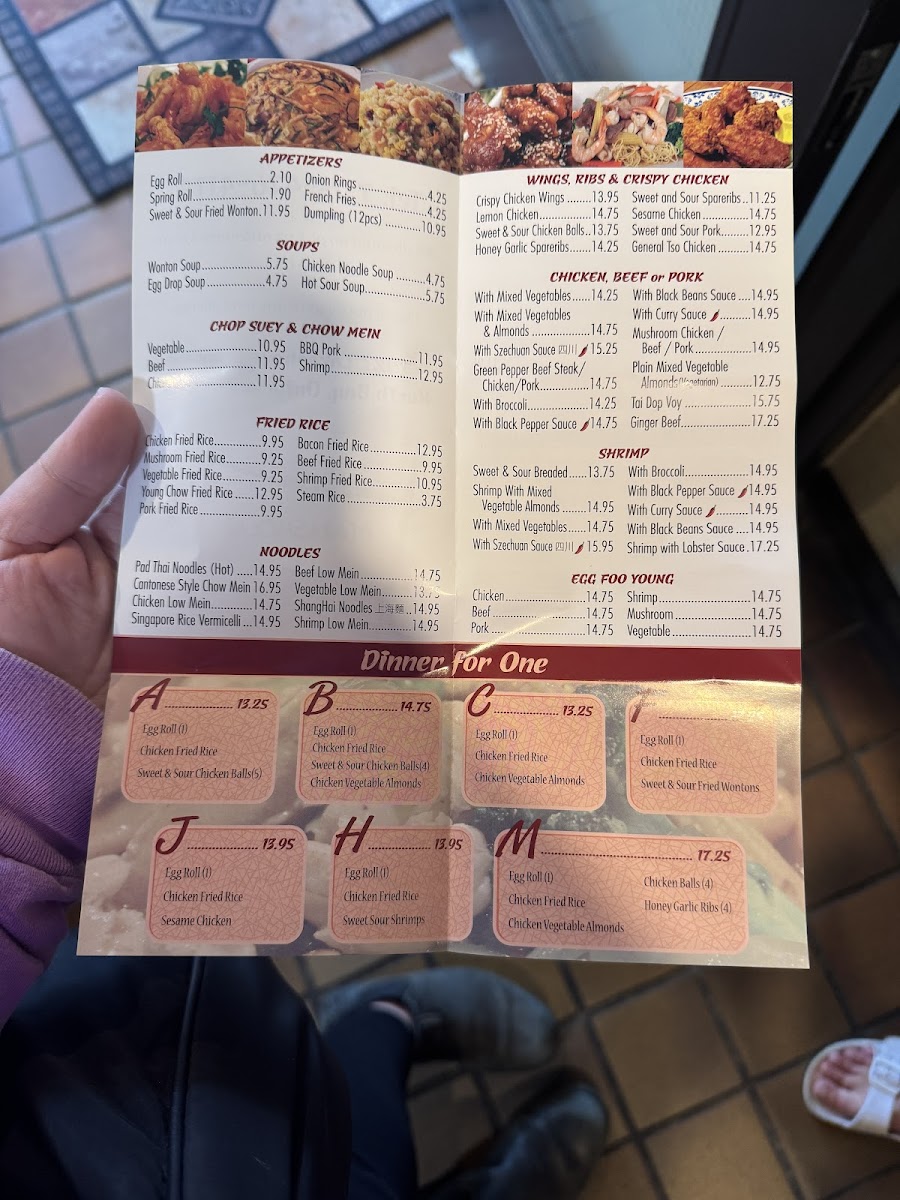 APPETIZERS
Egg Roll ..................... 2.10
Spring Roll ..................... 1.90
Sweet & Sour Fried Wonton. 11.95
Onion Rings ..................... 4.25
French Fries ..................... 4.25
Dumpling (12pcs) ........... 10.95
SOUPS
Wonton Soup ................ 5.75
Egg Drop Soup ............... 4.75
Chicken Noodle Soup ........ 4.75
Hot Sour Soup ................ 5.75
CHOP SUEY & CHOW MEIN
Vegetable ..................... 10.95
Beef ..................... 11.95
..................... 11.95
BBQ Pork ................ 11.95
Shrimp ..................... 12.95
FRIED RICE
Chicken Fried Rice ............ 9.95
Mushroom Fried Rice ......... 9.25
Vegetable Fried Rice .......... 9.25
Young Chow Fried Rice ..... 12.95
Pork Fried Rice ............ 9.95
Bacon Fried Rice ........... 12.95
Beef Fried Rice ............... 9.95
Shrimp Fried Rice ........... 10.95
Steam Rice ................ 3.75
NOODLES
Pad Thai Noodles (Hot) ..... 14.95
Cantonese Style Chow Mein 16.95
Chicken Low Mein ............ 14.75
Singapore Rice Vermicelli ... 14.95
Beef Low Mein ................ 14.75
Vegetable Low Mein ........ 13.75
ShangHai Noodles 上海麵 .. 14.95
Shrimp Low Mein ............ 14.95
WINGS, RIBS & CRISPY CHICKEN
Crispy Chicken Wings ....... 13.95
Lemon Chicken ............... 14.75
Sweet & Sour Chicken Balls .. 13.75
Honey Garlic Spareribs ...... 14.25
Sweet and Sour Spareribs .. 11.25
Sesame Chicken .............. 14.75
Sweet and Sour Pork ........ 12.95
General Tso Chicken ........ 14.75
CHICKEN, BEEF or PORK
With Mixed Vegetables ...... 14.25
With Mixed Vegetables
& Almonds ................ 14.75
With Szechuan Sauce 四川 15.25
Green Pepper Beef Steak/
Chicken/Pork ............ 14.75
With Broccoli ................ 14.25
With Black Pepper Sauce 14.75
With Black Beans Sauce .... 14.95
With Curry Sauce .......... 14.95
Mushroom Chicken /
Beef / Pork ................ 14.95
Plain Mixed Vegetable
Almonds(Vegetarian) ........ 12.75
Tai Dop Voy ................ 15.75
Ginger Beef ................ 17.25
SHRIMP
Sweet & Sour Breaded ...... 13.75
Shrimp With Mixed
Vegetable Almonds ...... 14.95
With Mixed Vegetables ...... 14.75
With Szechuan Sauce 四川 15.95
With Broccoli ................ 14.95
With Black Pepper Sauce 14.95
With Curry Sauce .......... 14.95
With Black Beans Sauce .... 14.95
Shrimp with Lobster Sauce . 17.25
EGG FOO YOUNG
Chicken ..................... 14.75
Beef ..................... 14.75
Pork ..................... 14.75
Shrimp ..................... 14.75
Mushroom ..................... 14.75
Vegetable ..................... 14.75
Dinner for One
A ..................... 13.25
Egg Roll (1)
Chicken Fried Rice
Sweet & Sour Chicken Balls(5)
B ..................... 14.75
Egg Roll (1)
Chicken Fried Rice
Sweet & Sour Chicken Balls(4)
Chicken Vegetable Almonds
C ..................... 13.25
Egg Roll (1)
Chicken Fried Rice
Chicken Vegetable Almonds
Egg Roll (1)
Chicken Fried Rice
Sweet & Sour Fried Wontons
J ..................... 13.95
Egg Roll (1)
Chicken Fried Rice
Sesame Chicken
H ..................... 13.95
Egg Roll (1)
Chicken Fried Rice
Sweet Sour Shrimps
M ..................... 17.25
Egg Roll (1)
Chicken Fried Rice
Chicken Vegetable Almonds
Chicken Balls (4)
Honey Garlic Ribs (4)